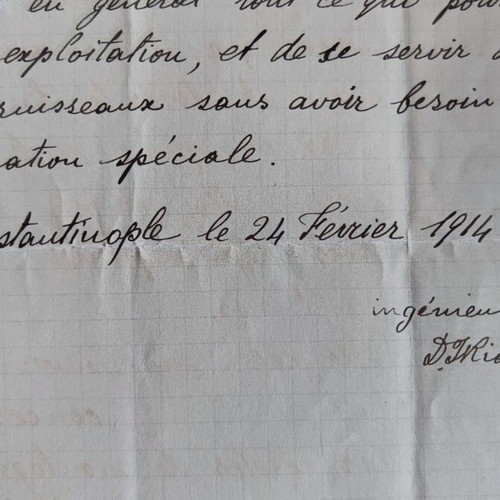 en général tout ce qui pour
exploitation, et de se servir
ruisseaux sans avoir besoin
ation spéciale.
stantinople le 24 Février 1914
ingénieu